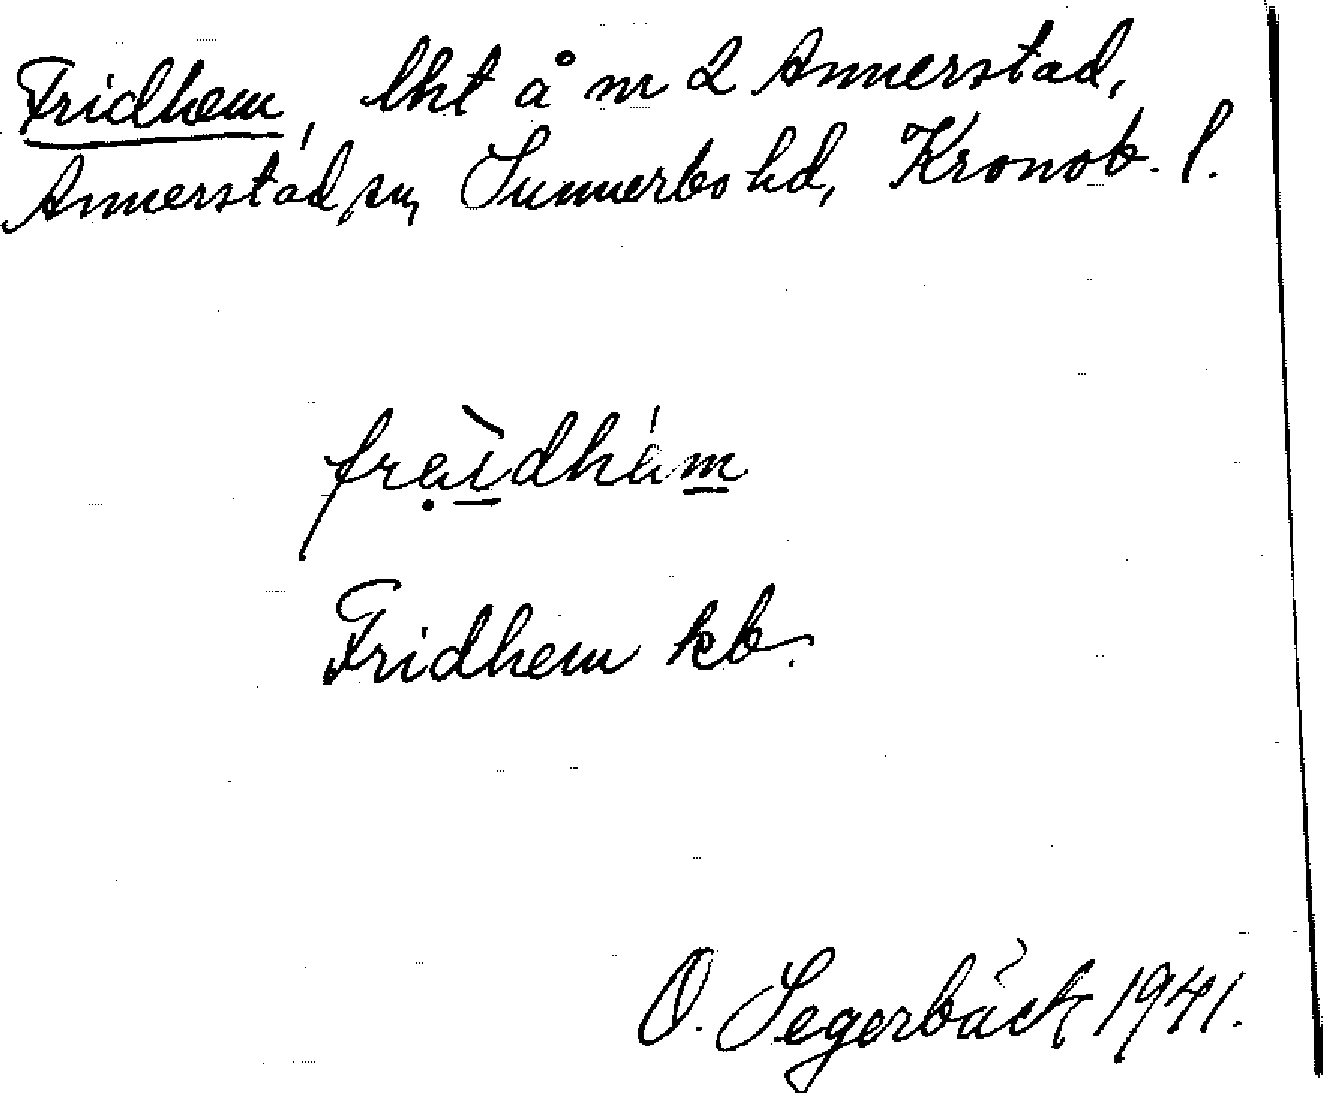 Fridhem, lht å m 2 Annerstad,
Annerstad sn, Sunnerbo hd, Kronob. l.
frạìdhám
Fridhem kb.
O. Segerbäck 1941.